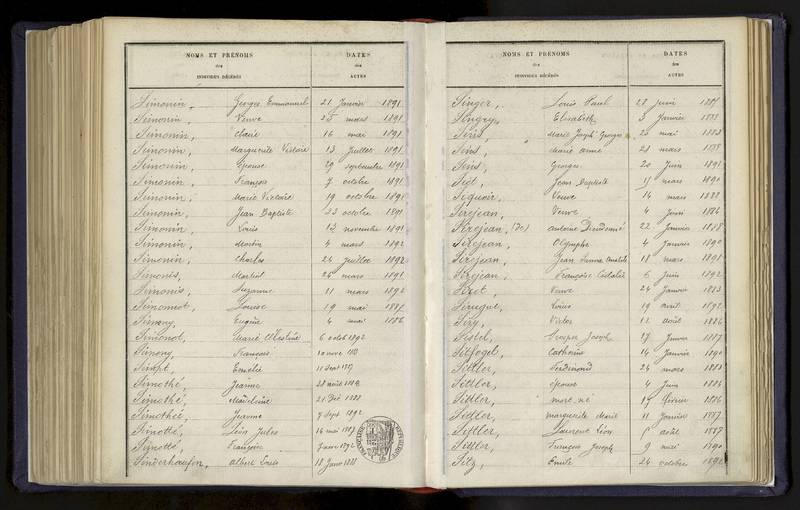 NOMS ET PRÉNOMS
des
INDIVIDUS DÉCÉDÉS
DATES
des
ACTES
Simonin, Georges Emmanuel 21 Janvier 1891
Simonin, Veuve 25 mars 1891
Simonin, Marie 16 mai 1891
Simonin, Marguerite Victoire 13 Juillet 1891
Simonin, Epouse 29 septembre 1891
Simonin, François 7 octobre 1891
Simonin, Marie Victoire 19 octobre 1891
Simonin, Jean Baptiste 23 octobre 1891
Simonin, Louis 13 novembre 1891
Simonin, Martin 4 mars 1892
Simonin, Charles 24 Juillet 1892
Simonis, Martial 24 mars 1891
Simonis, Suzanne 11 mars 1892
Louise 19 mai 1887
Simony, Eugène 4 mai 1886
Simonot, Marie Célestine 6 octob 1892
Simony, François
Emélie 11 Sept 1887
Simothé, Jeanne 28 août
Simothé, Madeleine 21 Déc 1888
Simothée, Jeanne 7 Sept 1892
Simotté, Léon Jules 16 mai 1887
Simotté, François 1892
Sinderhaufen, Albert Louis 18 Janv 1888
NOMS ET PRÉNOMS
des
INDIVIDUS DÉCÉDÉS
DATES
des
ACTES
Singer, Louis Paul 28 Juin
Singry, Elisabeth 3 Janvier
Sins, Marie Joseph Georges 20 mai 1883
Sins, Marie Anne 21 mars
Sins, Georges 20 Juin 1891
Jean Baptiste 15 mars 1890
Siquoir, Veuve 14 mars 1888
Sirejean, Veuve 4 Juin 1886
Sirejean, (Do) Antoine Dieudonné 22 Janvier
Sirejean, Olymphe 4 Janvier 1890
Sirejean, Jean 18 mars 1891
Sirejean, Françoise 6 Juin 1892
Siret, Veuve 24 Janvier 1883
Sirugue, Louis 19 avril 1892
Siry, Victor 12 août 1886
Sistel, Prosper Joseph 27 Janvier 1887
Sitfogel, Catherine 14 Janvier 1890
Sittler, Ferdinand 24 mars 1883
Sittler, épouse 4 Juin 1884
Sittler, mort né 14 février 1886
Sittler, Marguerite Marie 11 Janvier 1887
Sittler, Laurent Léon août 1887
Sittler, François Joseph 9 mai 1890
Sitz, Emile 24 octobre